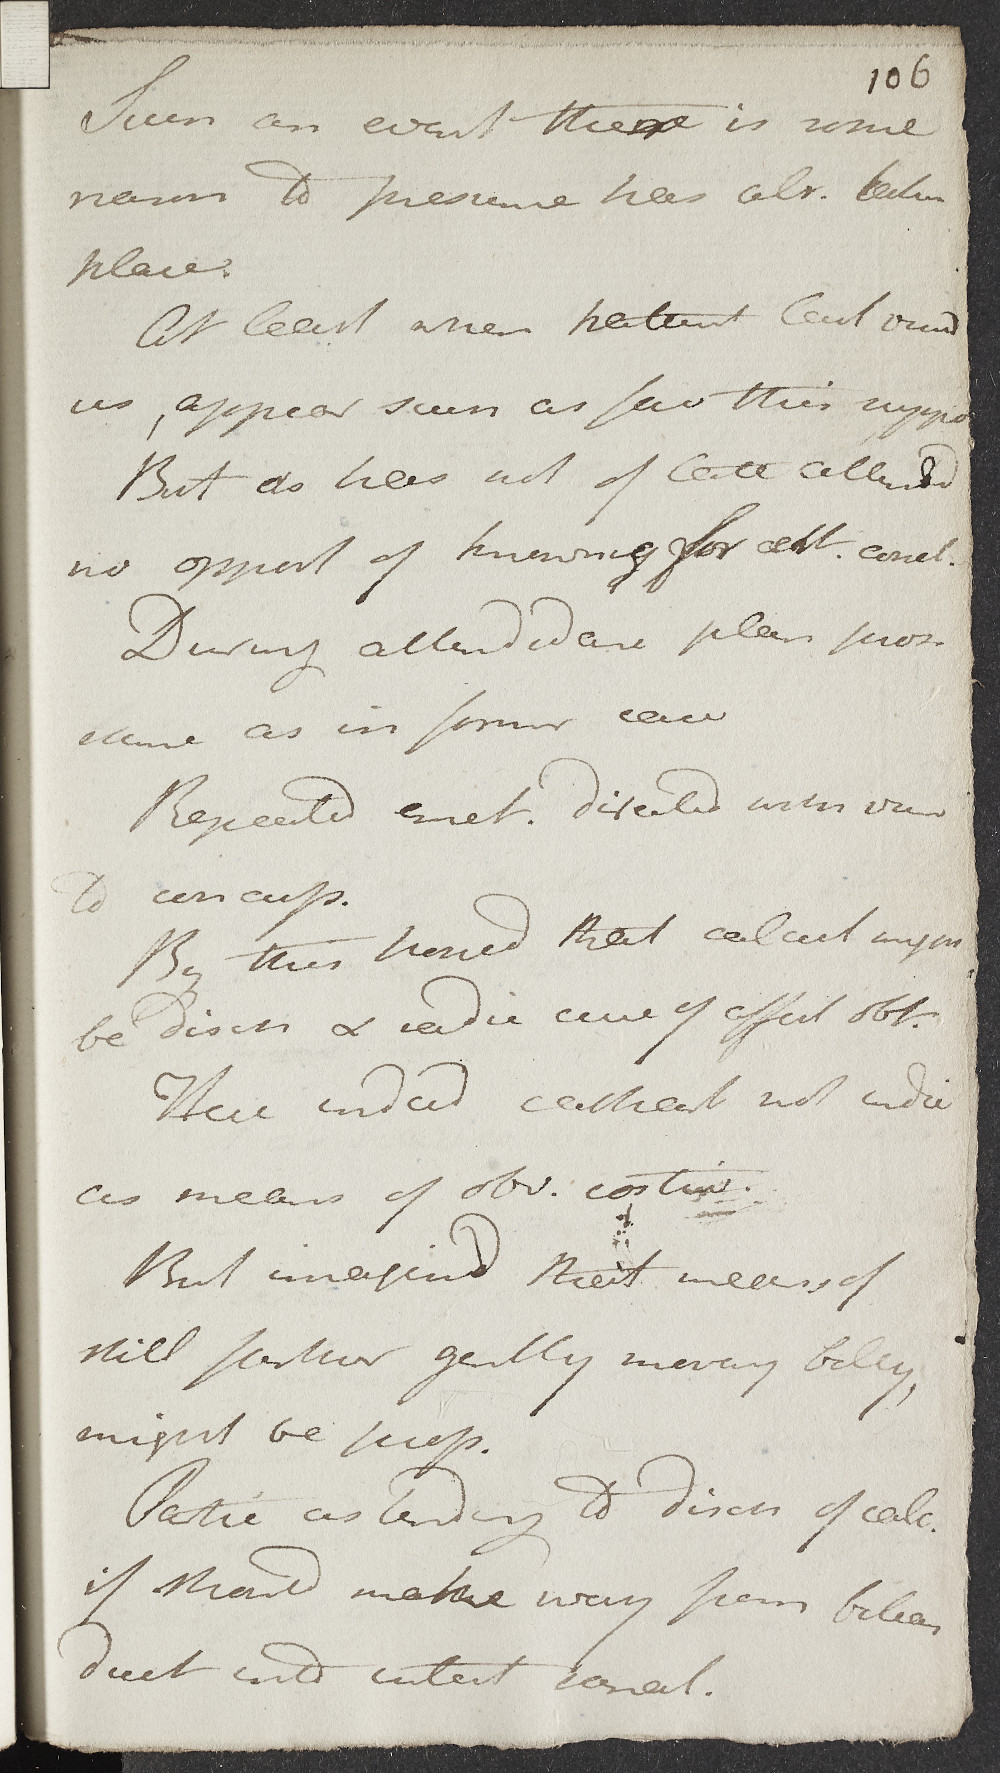 106
Such an event there is some
reason to presume has alr. taken
place.
At least when patient last und
us, appear such as fav this suppo
But as has not of late attend
no opport of knowing for cert. concl.
During attendance plan pros.
same as in former case
Repeated emet. directed with view
to concuss.
By this hoped that calcul might
be disch & radic cure of affect obt.
Here indeed cathart not indic
as means of obv. costiv.
But imagined that means of
still further gently moving belly,
might be prop.
Partic as tending to disch of calc.
if should make way from biliary
duct into intest canal.